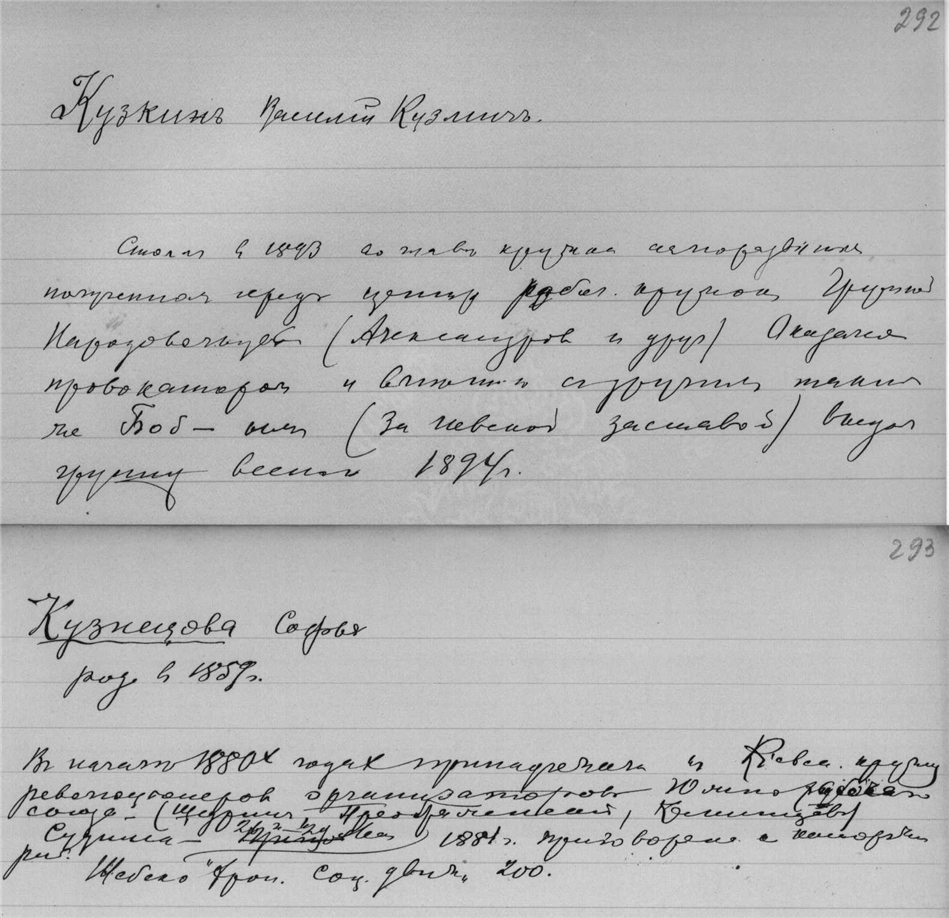 292
Кузкинъ Василій Кузмичъ.
Стоял в 1893 во главе кружка
среди центр рабоч. кружков Группой
Народовольцев (Александров и друг) Оказался
провокатором и вместе с другим таким
же Боб— вым (за Невской заставой) выдал
группу весной 1894 г.
293
Кузнецова Софья
род. в 1859 г.
В начале 1880х годах принадлежала к Киевск. кружку
революционеров организаторов Южно рабочаго
союза — (Щедрин, Преображенский,
Судима — 1881 г. приговорена к каторжн
раб.
Шебеко "Хрон. соц. движ." 200.